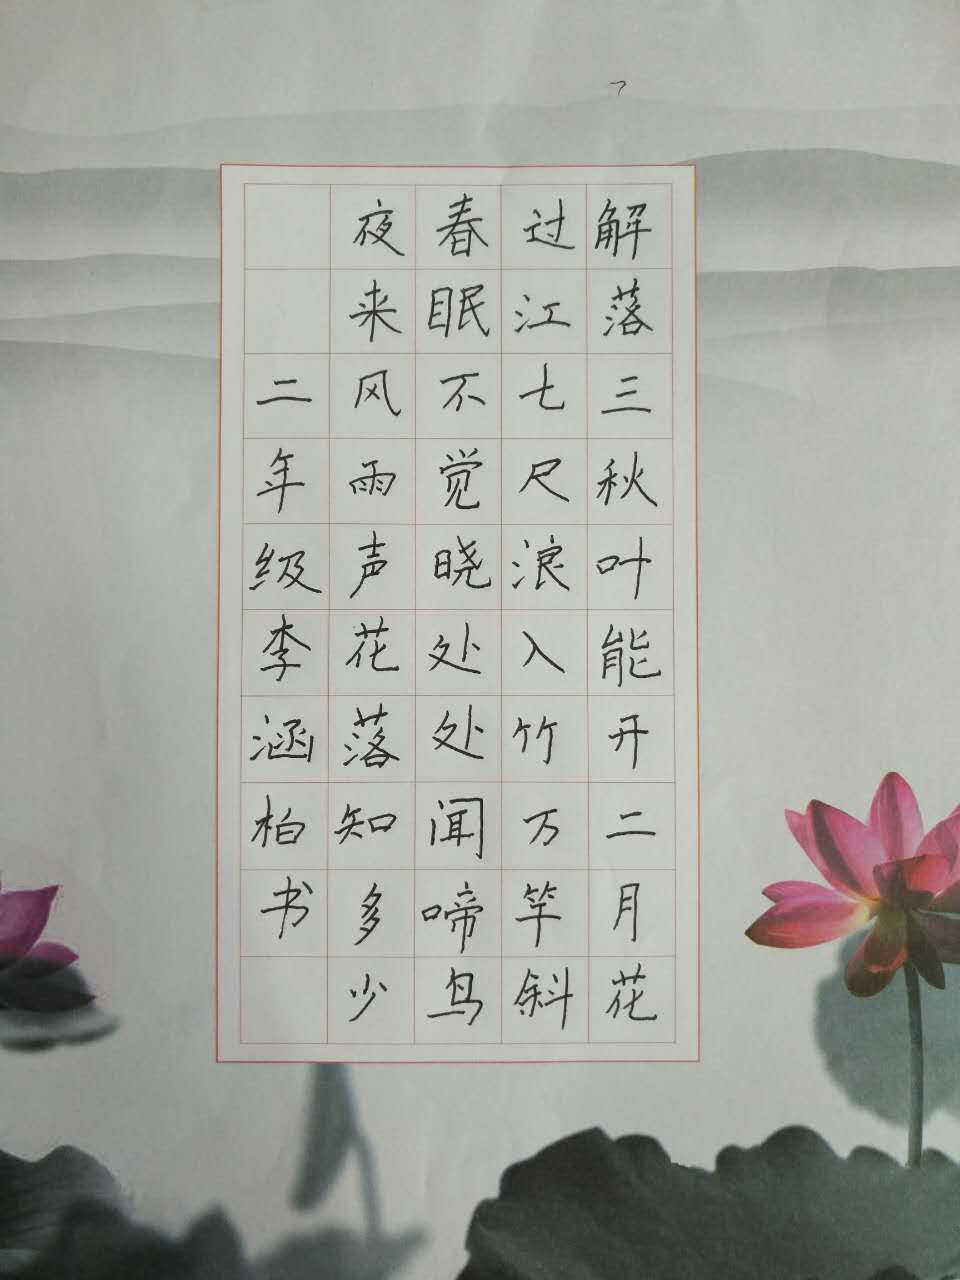 解落三秋叶能开二月花
过江七尺浪入竹万竿斜
春眠不觉晓处处闻啼鸟
夜来风雨声花落知多少
二年级李涵柏书